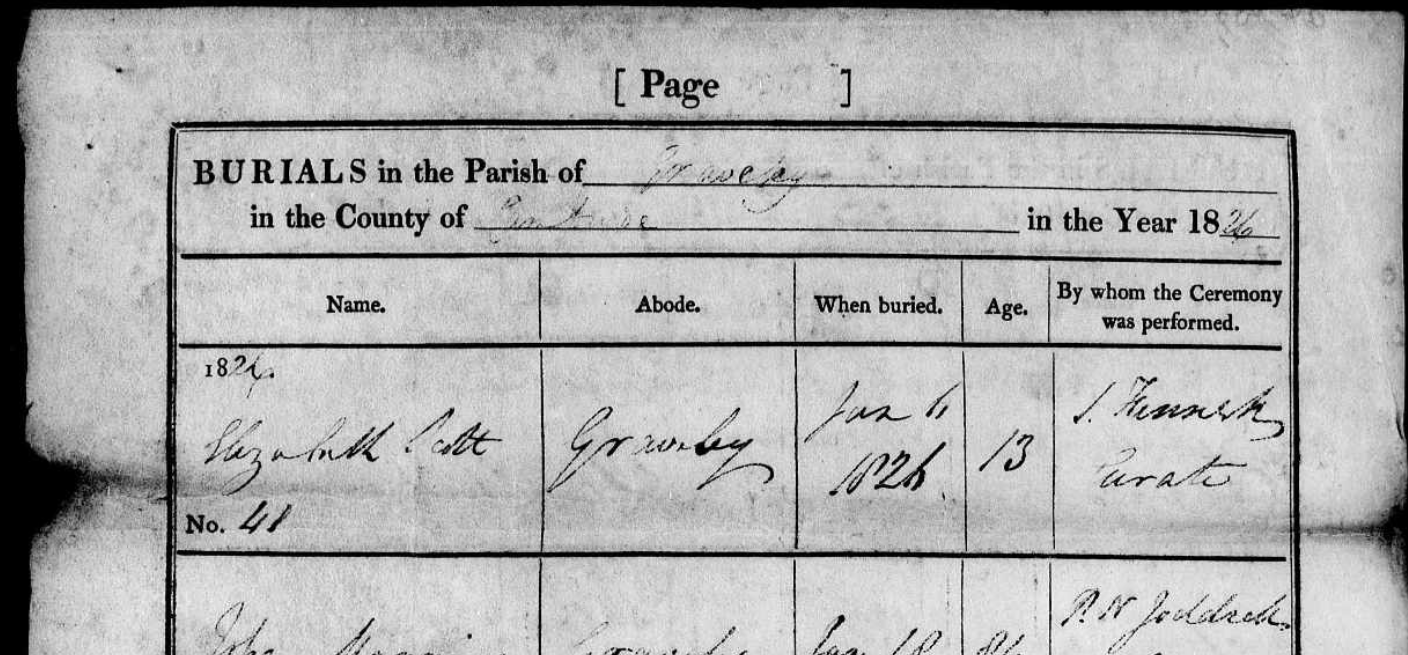 [ Page ]
BURIALS in the Parish of Graveley
in the County of in the Year 1826
Name. Abode. When buried. Age. By whom the Ceremony was performed.
1826.
Elizabeth Scott Graveley Jan 6 1826. 13 Curate
No. 41
John Graveley Jan 18